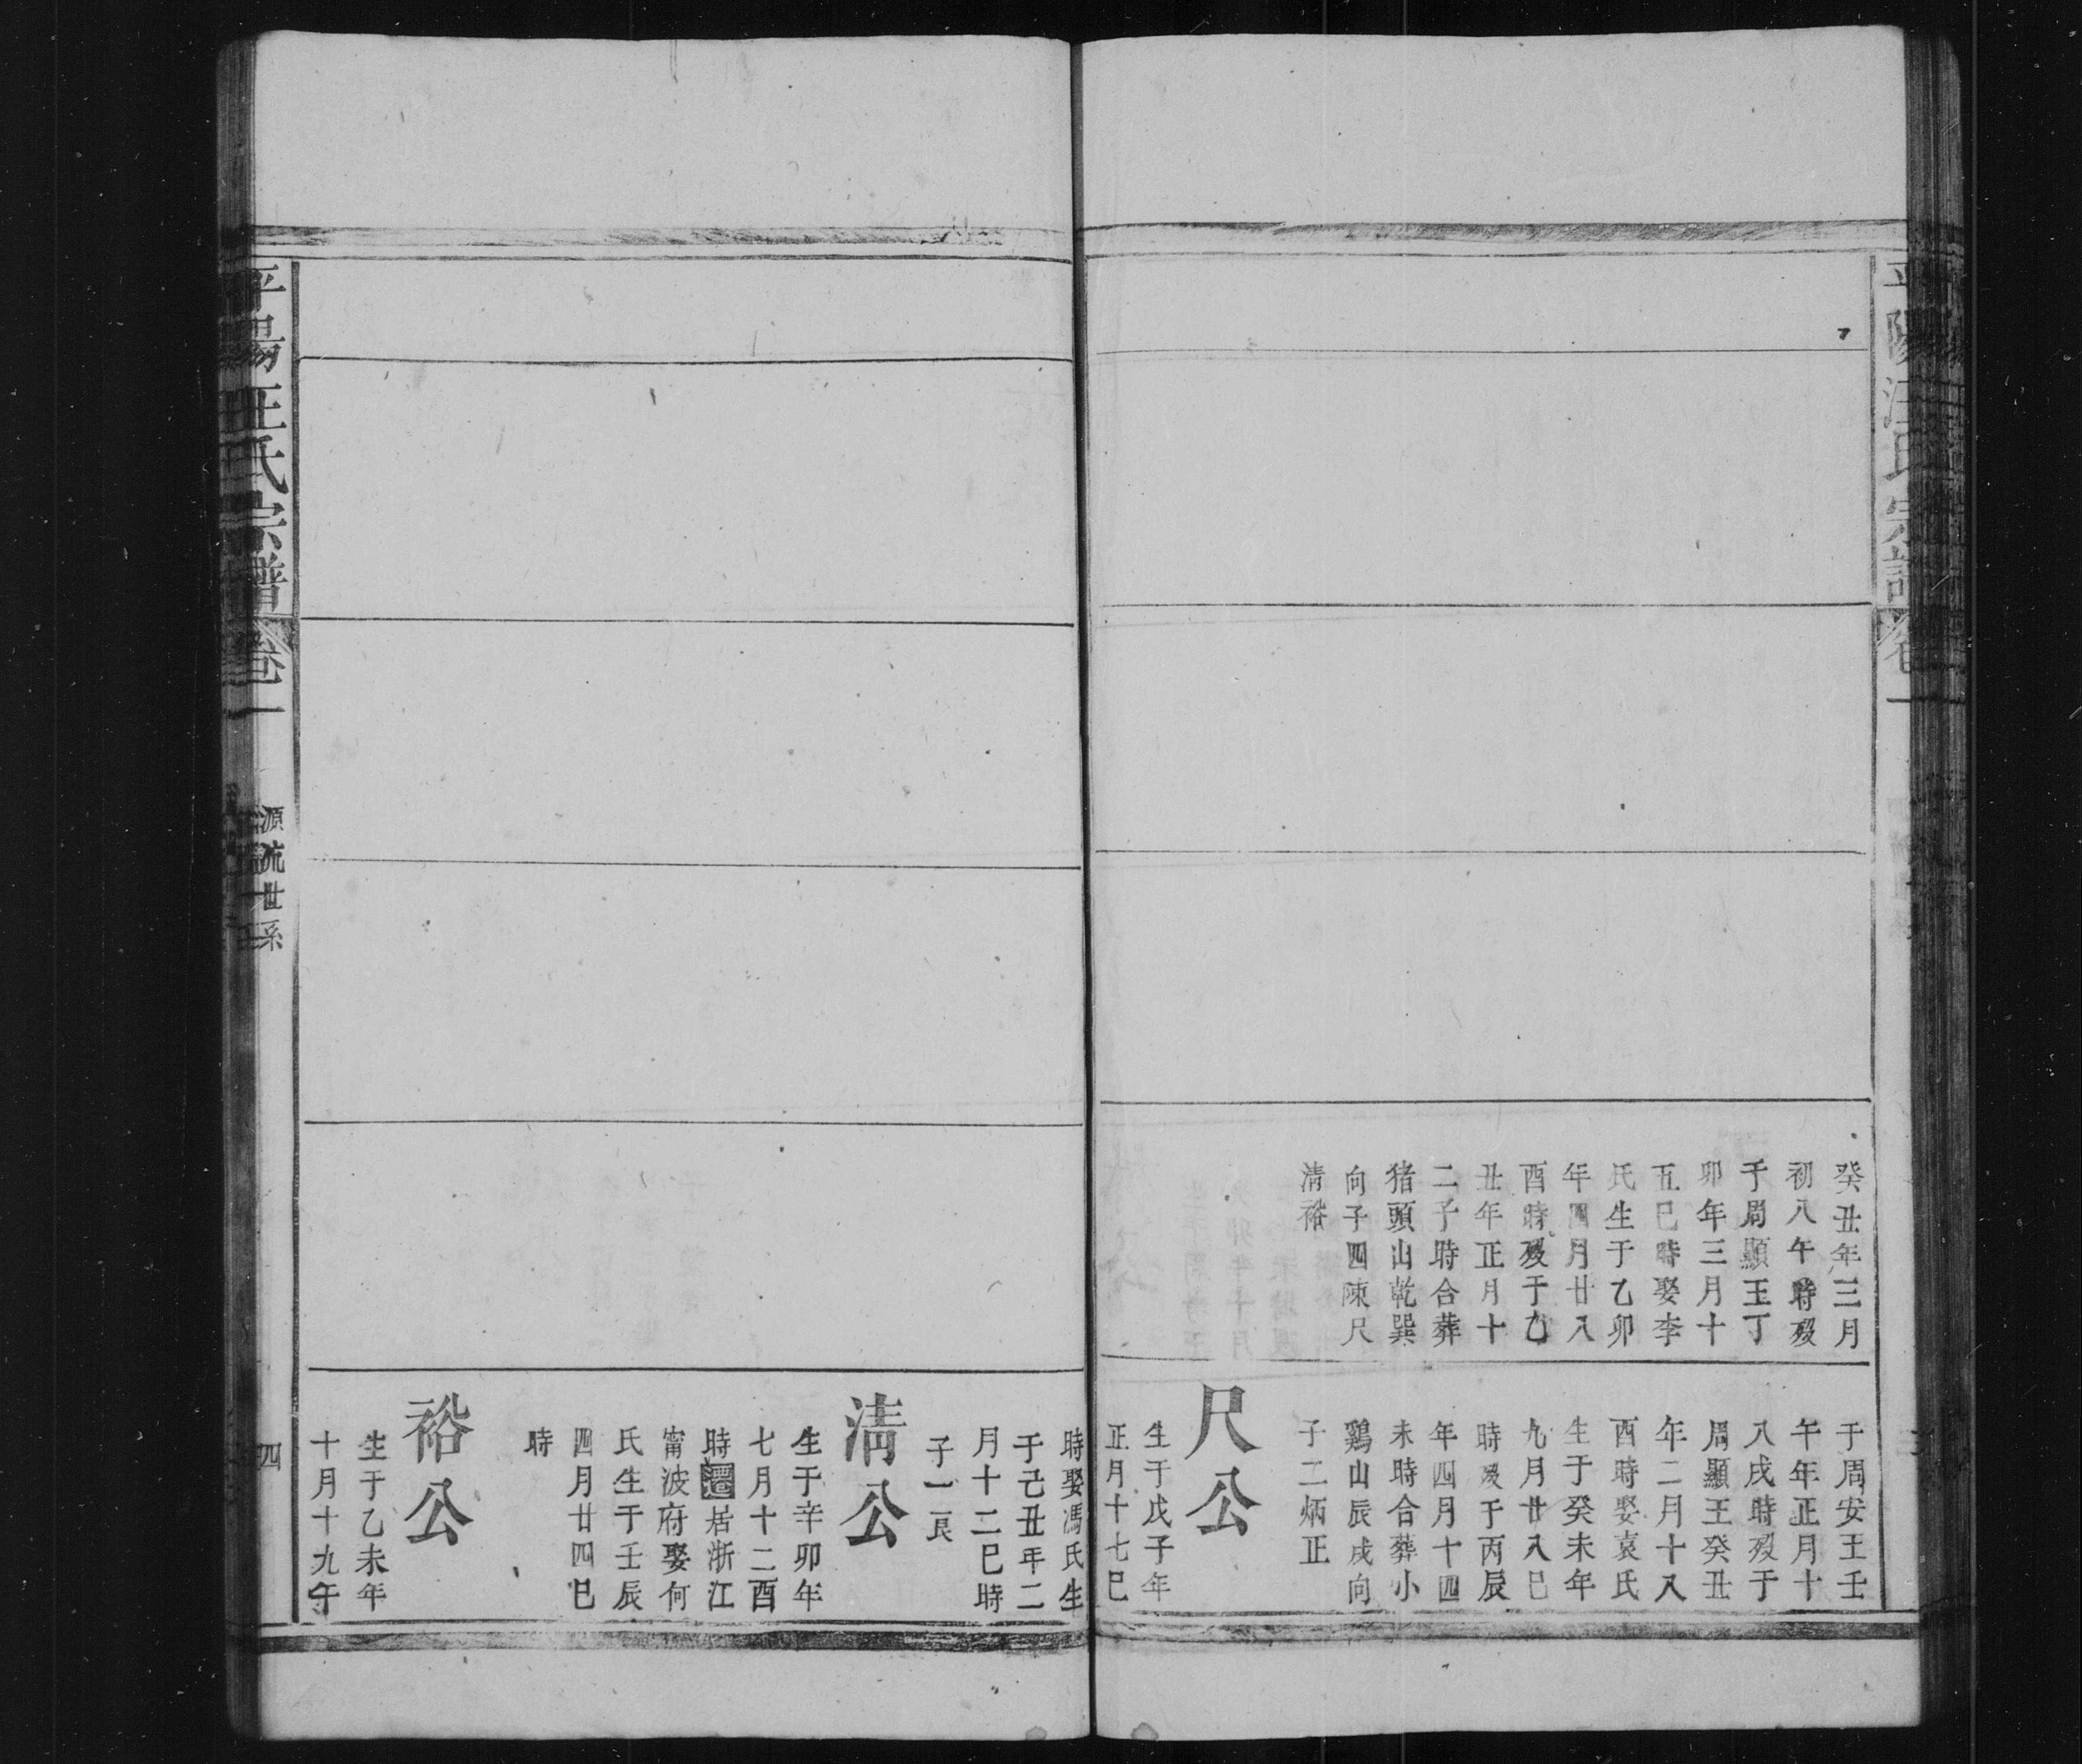 平陽汪氏宗譜
卷一
癸丑年三月
初八午時歿
于周顯王丁
卯年三月十
五巳時娶李
氏生于乙卯
年四月廿八
酉時歿于乙
丑年正月十
二子時合葬
猪頭山乾巽
向子四陳尺
清裕
于周安王壬
午年正月十
八戌時歿于
周顯王癸丑
年二月十八
酉時娶袁氏
生于癸未年
九月廿八巳
時歿于丙辰
年四月十四
未時合葬小
鷄山辰戌向
子二炳正
尺公
生于戊子年
正月十七巳
時娶馮氏生
于己丑年二
月十二巳時
子一良
清公
生于辛卯年
七月十二酉
時遷居浙江
甯波府娶何
氏生于壬辰
四月廿四巳
時
裕公
生于乙未年
十月十九午
平陽汪氏宗譜
卷一
源流世系
四